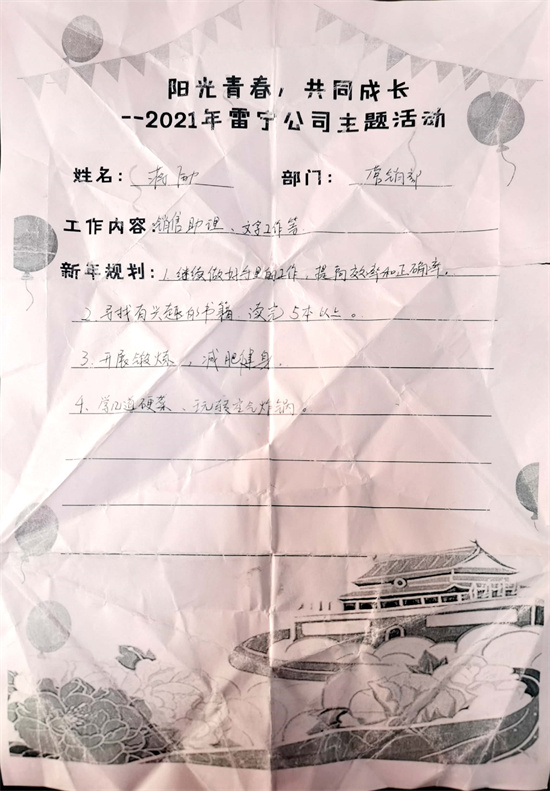 阳光青春，共同成长
--2021年雷宁公司主题活动
姓名： 部门：营销部
工作内容：销售助理、文字工作等
新年规划：1、继续做好手里的工作，提高效率和正确率。
2、寻找有兴趣的书籍，读完5本以上。
3、开展锻炼，减肥健身。
4、学几道硬菜、玩转空气炸锅。